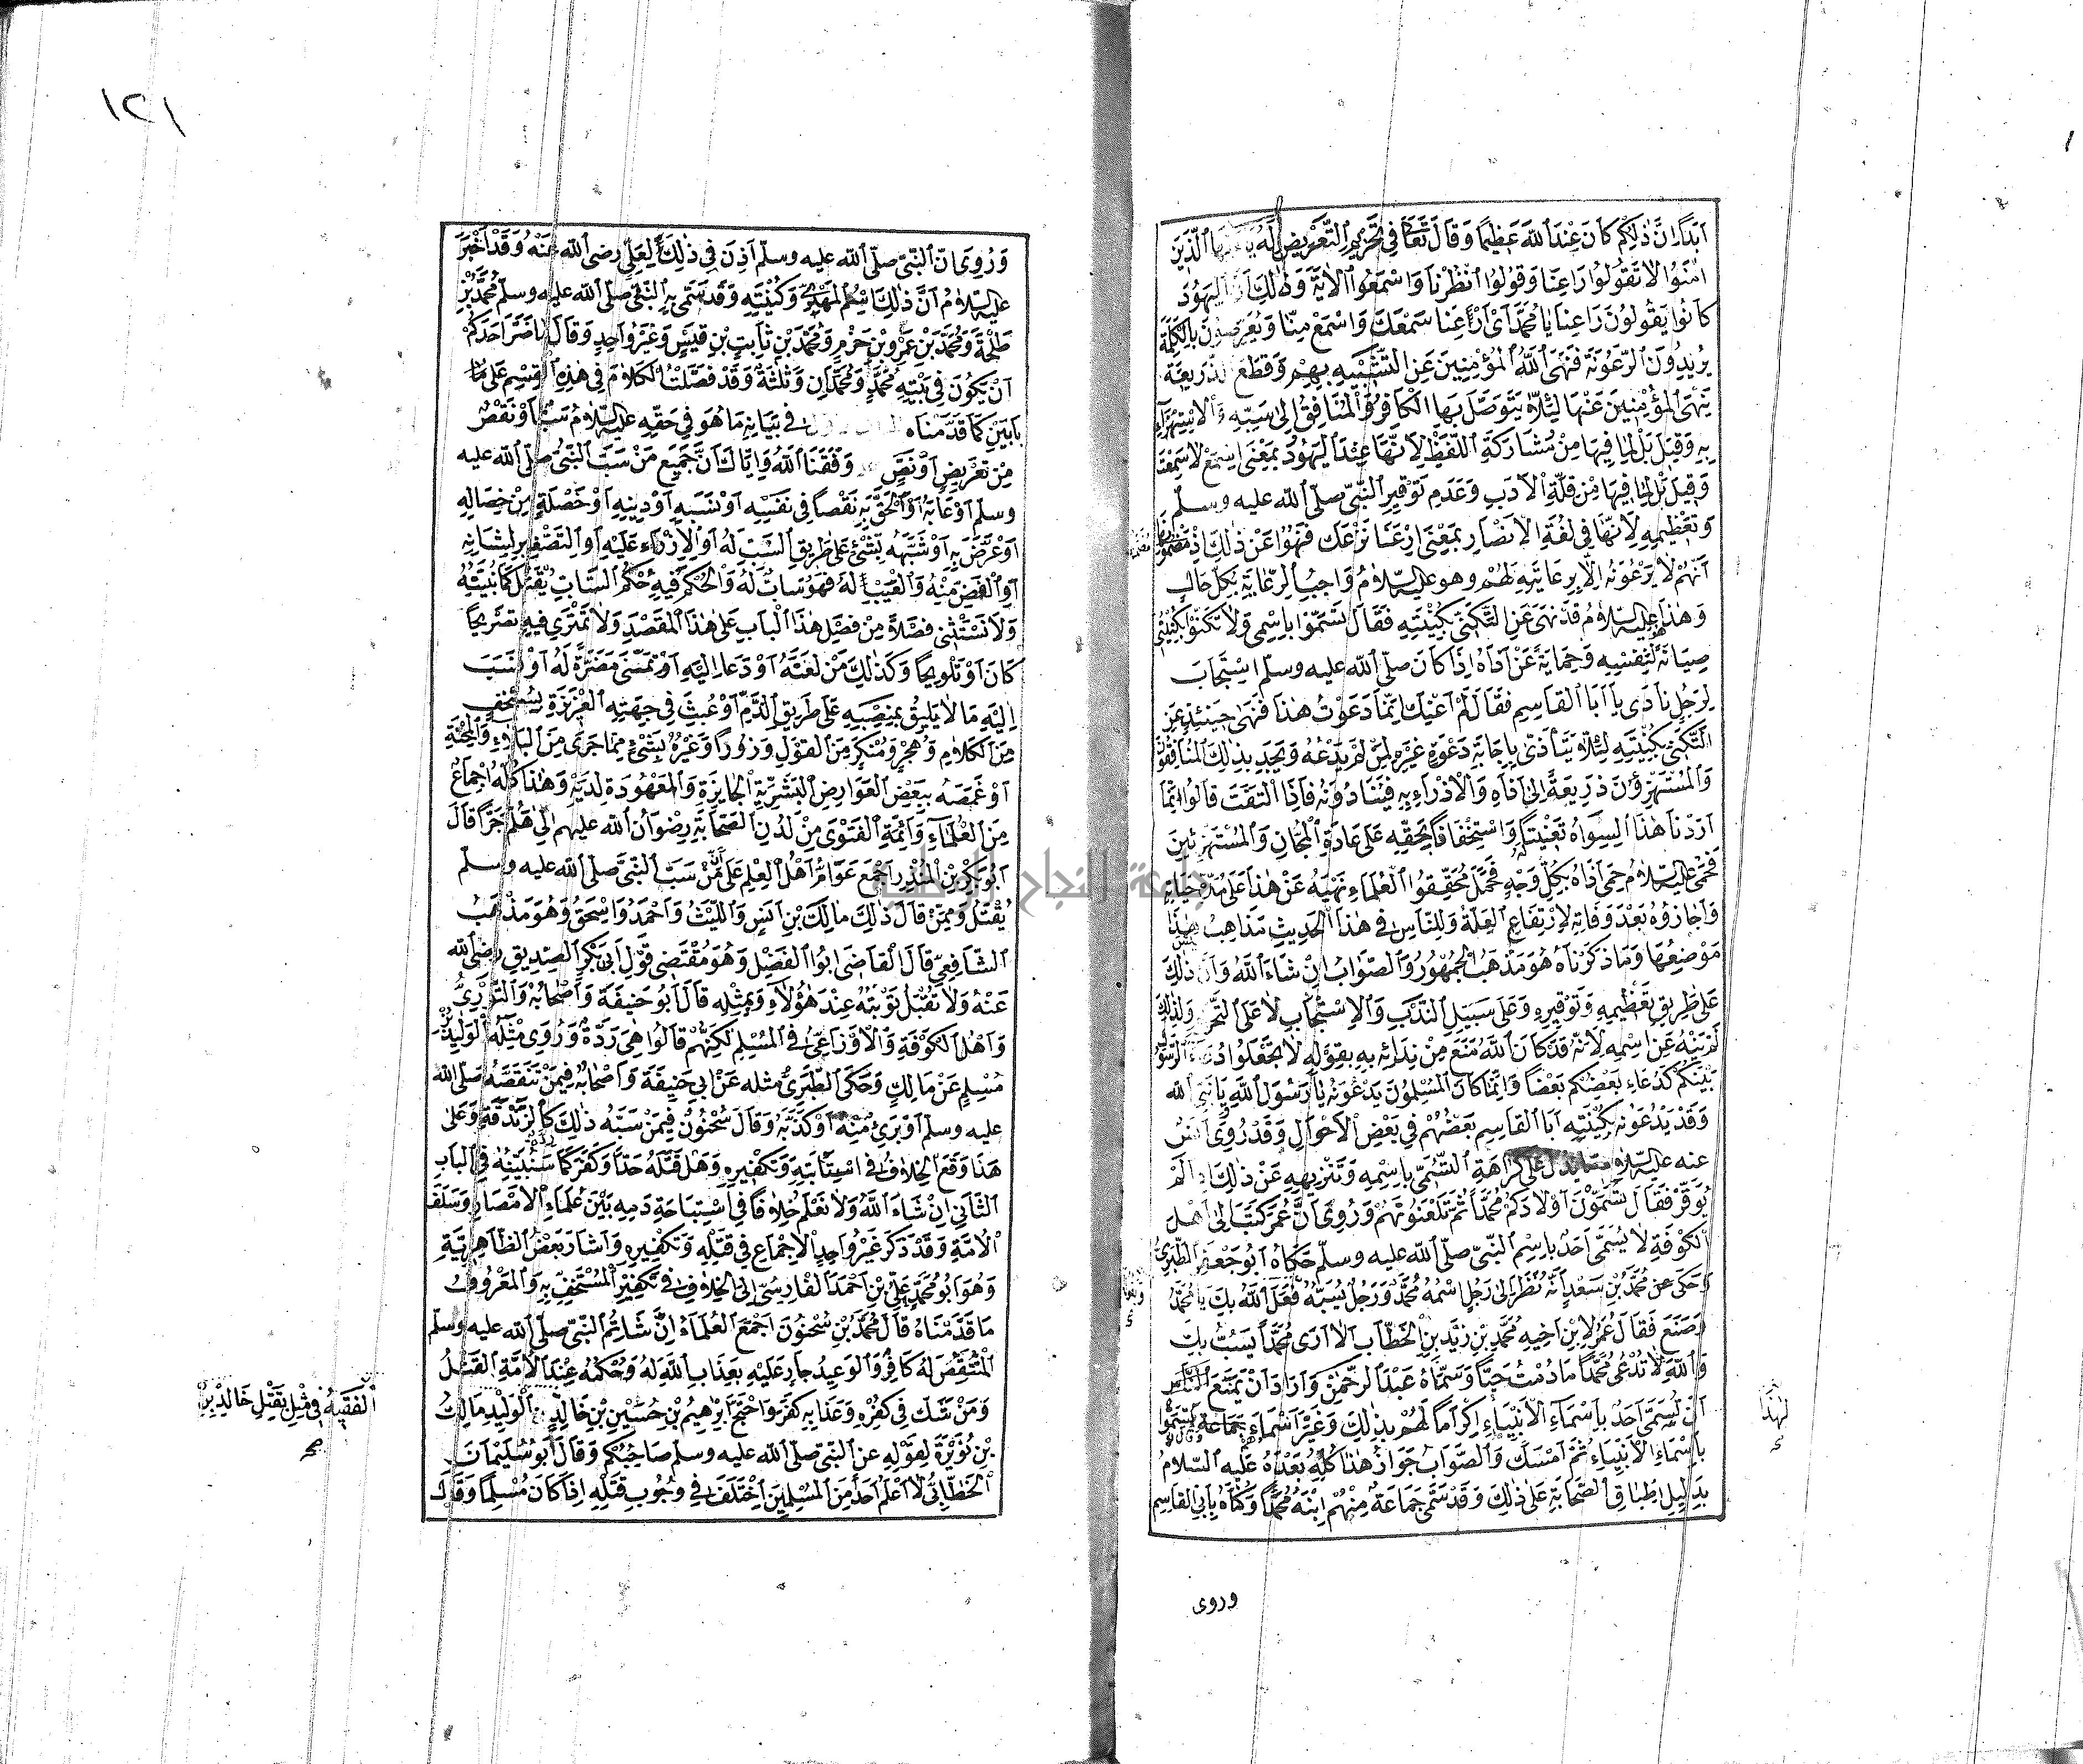 ابدا ان ذلكم كان عند الله عظيما وقال تعالى في تحريم التعريض له يا ايها الذين
امنوا لا تقولوا راعنا وقولوا انظرنا واسمعوا الاية وذلك ان اليهود
كانوا يقولون راعنا يا محمد اى ارعنا سمعك واسمع منا ويعرضون بالكلمة
يريدون الرعونة فنهى الله المؤمنين عن التشبيه بهم وقطع الذريعة
ينهى المؤمنين عنها لئلا يتوصل بها الكافر والمنافق الى سبه والاستهزاء
به وقيل بل لما فيها من مشاركة اللفظ لانها عند اليهود بمعنى اسمع لا سمعت
وقيل بل لما فيها من قلة الادب وعدم توقير النبى صلى الله عليه وسلم
وتعظيمه لانها في لغة الانصار بمعنى ارعنا نرعك فنهوا عن ذلك اذ مضمونها
انهم لا يرعونه الا برعايته لهم وهو عليه السلام واجب الرعاية بكل حال
وهذا عليه السلام قد نهى عن التكنى بكنيته فقال تسموا باسمى ولا تكنوا بكنيتى
صيانة لنفسه وحماية عن اذاه اذ كان صلى الله عليه وسلم استجاب
لرجل نادى يا ابا القاسم فقال لم اعنك انما دعوت هذا فنهى حينئذ عن
التكنى بكنيته لئلا يتأذى باجابة دعوة غيره لمن لم يدعه ويجد بذلك المنافقون
والمستهزؤن ذريعة الى اذاه والازراء به فينادونه فاذا التفت قالوا انما
اردنا هذا لسواه تعنيتا واستخفافا بحقه على عادة المجان والمستهزئين
فحمى عليه السلام حمى اذاه بكل وجه فحمل محققوا العلماء نهيه عن هذا على مدة حياته
واجازوه بعد وفاته لارتفاع العلة وللناس في هذا الحديث مذاهب ليس هذا
موضعها وما ذكرناه هو مذهب الجمهور والصواب ان شاء الله وان ذلك
على طريق تعظيمه وتوقيره وعلى سبيل الندب والاستحباب لا على التحريم ولذلك
لم ينه عن اسمه لانه قد كان الله منع من ندائه به بقوله لا تجعلوا دعاء الرسول
بينكم كدعاء بعضكم بعضا وانما كان المسلمون يدعونه يا رسول الله يا نبى الله
وقد يدعونه بكنيته ابا القاسم بعضهم في بعض الاحوال وقد روى انس
عنه عليه السلام ما يدل على كراهة التسمى باسمه وتنزيهه عن ذلك اذا لم
يوقر فقال تسمون اولادكم محمدا ثم تلعنونهم وروى ان عمر كتب الى اهل
الكوفة لا يسمى احد باسم النبى صلى الله عليه وسلم حكاه ابو جعفر الطبرى
وحكى عن محمد بن سعد انه نظر الى رجل اسمه محمد ورجل يسبه فعل الله بك يا محمد
وصنع فقال عمر لابن اخيه محمد بن زيد بن الخطاب الا ارى محمدا يسب بك
والله لا تدعى محمدا ما دمت حيا وسماه عبد الرحمن واراد ان يمنع الناس
لهذا
ان يسمى احد باسماء الانبياء اكراما لهم بذلك وغير اسماء جماعة تسموا
باسماء الانبياء ثم امسك والصواب جواز هذا كله بعده عليه السلام
بدليل اطباق الصحابة على ذلك وقد سمى جماعة منهم ابنه محمدا وكناه بابى القاسم
وروى
١٢١
وروى ان النبى صلى الله عليه وسلم اذن في ذلك لعلى رضى الله عنه وقد اخبر
عليه السلام ان ذلك اسم المهدى وكنيته وقد سمى به النبى صلى الله عليه وسلم محمد بن
طلحة ومحمد بن عمرو بن حزم ومحمد بن ثابت بن قيس وغير واحد وقال ما ضر احدكم
ان يكون في بيته محمد ومحمدان وثلثة وقد فصلت الكلام في هذه القسم على ما
بابين كما قدمناه في بيانه ما هو في حقه عليه السلام سب او نقص
من تعريض او نص وفقنا الله واياك ان جميع من سب النبى صلى الله عليه
وسلم او عابه او الحق به نقصا في نفسه او نسبه او دينه او خصلة من خصاله
او عرض به او شبهه بشئ على طريق السب له او الازراء عليه او التصغير لشانه
او الغض منه والعيب له فهو ساب له والحكم فيه حكم الساب يقتل كما نبينه
ولا نستثنى فصلا من فصل هذا الباب على هذا المقصد ولا نمترى فيه تصريحا
كان او تلويحا وكذلك من لعنه او دعا اليه او تمنى مضرة له او نسب
اليه ما لا يليق بمنصبه على طريق الذم او عبث في جهته العزيزة بسخف
من الكلام وهجر ومنكر من القول وزورا وغيره بشئ مما جرى من البلاء والمحنة
او غمصه ببعض العوارض البشرية الجايزة والمعهودة لديه وهذا كله اجماع
من العلماء وائمة الفتوى من لدن الصحابة رضوان الله عليهم الى هلم جرا قال
ابو بكر بن المنذر اجمع عوام اهل العلم على ان من سب النبى صلى الله عليه وسلم
يقتل وممن قال ذلك مالك بن انس والليث واحمد واسحق وهو مذهب
الشافعى قال القاضى ابوا الفضل وهو مقتضى قول ابى بكر الصديق رضى الله
عنه ولا تقبل توبته عند هؤلاء وبمثله قال ابو حنيفة واصحابه والثورى
واهل الكوفة والاوزاعى في المسلم لكنهم قالوا هى ردة وروى مثله الوليد بن
مسلم عن مالك وحكى الطبرى مثله عن ابى حنيفة واصحابه فيمن تنقصه صلى الله
عليه وسلم او برئ منه او كذبه وقال سحنون فيمن سبه ذلك ردة كالزندقة وعلى
هذا وقع الخلاف في استتابته وتكفيره وهل قتله حدا وكفر كما سنبينه في الباب
الثانى ان شاء الله ولا نعلم خلافا في استباحة دمه بين علماء الامصار وسلف
الامة وقد ذكر غير واحد الاجماع في قتله وتكفيره واشار بعض الظاهرية
وهو ابو محمد على بن احمد الفارسى الى الخلاف في تكفير المستخف به والمعروف
ما قدمناه قال محمد بن سحنون اجمع العلماء ان شاتم النبى صلى الله عليه وسلم
المتنقص له كافر والوعيد جار عليه بعذاب الله له وحكمه عند الامة القتل
ومن شك في كفره وعذابه كفر واحتج ابرهيم بن حسين بن خالد بن الوليد مالك
الفقيه في مثل بقتل خالد بن
صح
بن نويرة لقوله عن النبى صلى الله عليه وسلم صاحبكم وقال ابو سليمان
الخطابى لا اعلم احد من المسلمين اختلف في وجوب قتله اذا كان مسلما وقال
جامعة النجاح الوطنية